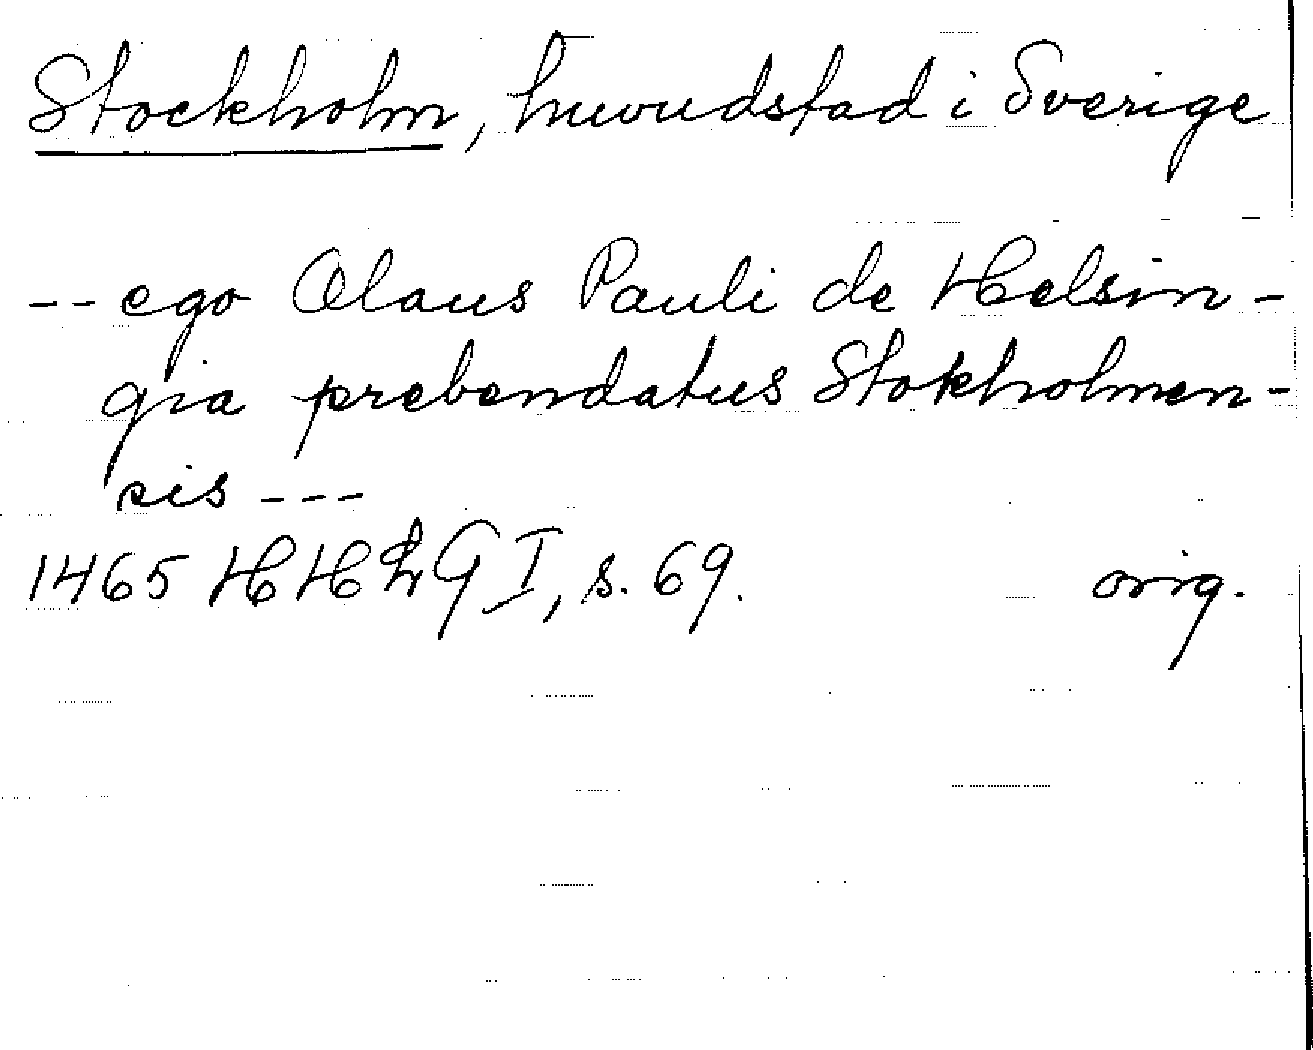 Stockholm, huvudstad i Sverige
-- ego Olaus Pauli de Helsin-
gia prebendatus Stokholmen-
sis ---
1465 HHLG I, s. 69. orig.